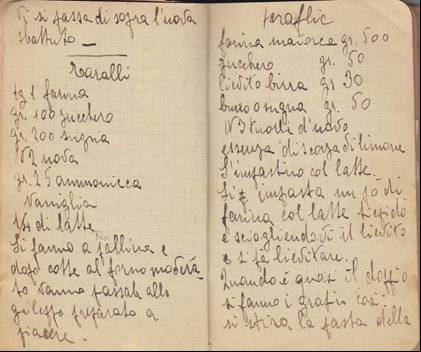 Vi si passa di sopra l'uova
sbattuto
Taralli
kg 1 farina
gr. 100 zucchero
gr. 200 sugna
N2 uova
gr. 25 ammoniaca
Vaniglia
1/4 di latte
Si fanno a pallina e
dopo cotte al forno modera
to vanno passate allo
gileppo preparato a
piacere.
farina maiorca gr. 500
zucchero gr. 50
lievito birra gr 30
burro o sugna gr. 50
N 3 tuorli d'uovo
essenza di scorza di limone
S'impastino col latte.
Si impasta un pò di
farina col latte tiepido
e sciogliendovi il lievito
e si fa lievitare.
Quando è quasi il doppio
si fanno i grafii così
si stira la pasta della